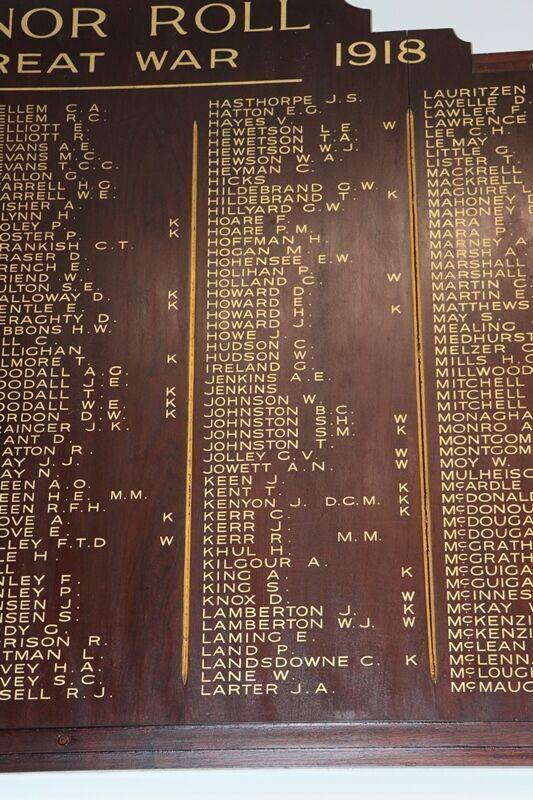 NOR ROLL
REAT WAR 1918
ELLEM C. A.
ELLEM R. C.
ELLIOTT E.
ELLIOTT J.
EVANS A. E.
EVANS M. C.
EVANS T. C. C.
FALLON G.
FARRELL H. G.
FARRELL W. E.
ISHER A.
LYNN H.
OLEY P. K
OSTER P. K
RANKISH C. T.
RASER D.
RENCH E.
RIEND W.
ULTON S. E.
ALLOWAY D. K
ENTLE S. K
ERAGHTY D.
BBONS H. W.
LL C.
LLIGHAN
LMORE T. K
OODALL A. G.
OODALL J. E.
OODALL T. K
OODALL W. E. K
ORDON D. W. K
RAINGER J. K.
RANT D.
RATTON R.
RAY J. J.
RAY N.
REEN A. O.
REEN H. E. M. M.
REEN R. F. H.
ROVE A. K
ROVE E.
LLEY F. T. D W
LE H.
LL
NLEY F.
NLEY P.
NSEN J.
NSEN S.
DY G.
RISON R.
TMAN L.
VEY H. A.
VEY S. C.
SSELL R. J.
HASTHORPE J. S.
HATTON E. G.
HAYES J.
HEWETSON L. E. W
HEWETSON T. A.
HEWETSON W. J.
HEWSON W. A.
HEYMAN C.
HICKS
HILDEBRAND G. W.
HILDEBRAND T. K
HILLYARD G. W.
HOARE F.
HOARE P. M.
HOFFMAN H.
HOGAN M.
HOHENSEE E. W.
HOLIHAN P.
HOLLAND C. W
HOWARD D.
HOWARD E.
HOWARD H. K
HOWARD J.
HOWE J.
HUDSON C.
HUDSON W.
IRELAND G.
JENKINS A. E.
JENKINS
JOHNSON W.
JOHNSTON B. C. W
JOHNSTON S. M. K
JOHNSTON T.
JOLLEY G. V. W
JOWETT A. N. W
KEEN J.
KENT J. K
KENYON J. D. C. M. K
KERR C. K
KERR J.
KERR R. M. M.
KHUL H.
KILGOUR A.
KING A. K
KING S.
KNOX D. W
LAMBERTON J. K
LAMBERTON W. J. W
LAMING E.
LAND P.
LANDSDOWNE C. K
LANE W.
LARTER J. A.
LAURITZEN
LAVELLE P.
LAWLER P.
LAWRENCE
LEE C. H.
LE MAY
LITTLE G.
LISTER T.
MACKRELL
MACKRELL
MAGUIRE L
MAHONEY
MAHONEY
MARA
MARA P.
MARNEY A
MARSH A.
MARSHALL
MARSHALL
MARTIN C.
MARTIN E.
MATTHEWS
MAY S.
MEALING
MEDHURST
MELZER
MILLS H.
MILLWOOD
MITCHELL
MITCHELL
MITCHELL
MONAGHA
MONRO A.
MONTGOM
MONTGOM
MOY W.
MULHEISC
McARDLE
McDONALD
McDONOU
McDOUGA
McDOUGA
McGRATH
McGRATH
McGUIGA
McGUIGA
McINNES
McKAY
McKENZI
McKENZI
McLEAN
McLENNA
McLOUGH
McMAUG